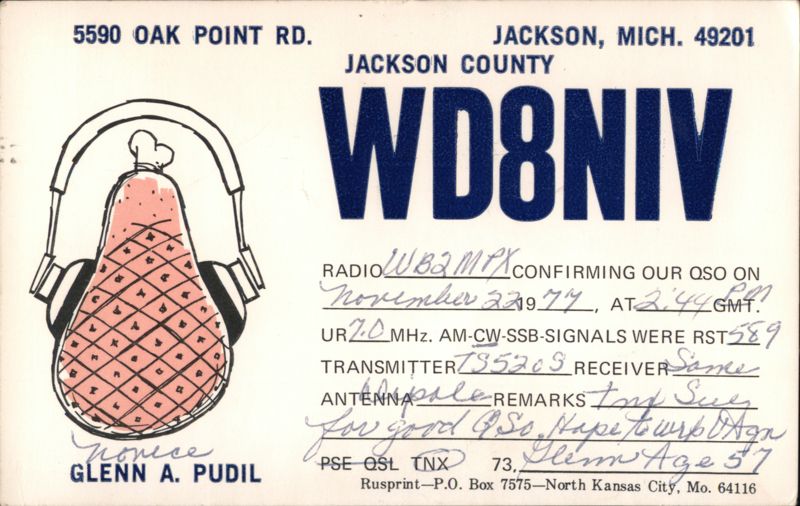 5590 OAK POINT RD. JACKSON, MICH. 49201
JACKSON COUNTY
WD8NIV
RADIO WB2MPX CONFIRMING OUR QSO ON
November 22 1977, AT 2:44 PM GMT.
UR 7.0 MHz. AM-CW-SSB-SIGNALS WERE RST 589
TRANSMITTER TS520S RECEIVER Same
ANTENNA Dipole REMARKS Tnx Suey
for good QSo. Hope to wrk U Agn
PSE QSL TNX 73, Glenn Age 57
novice
GLENN A. PUDIL
Rusprint—P.O. Box 7575—North Kansas City, Mo. 64116